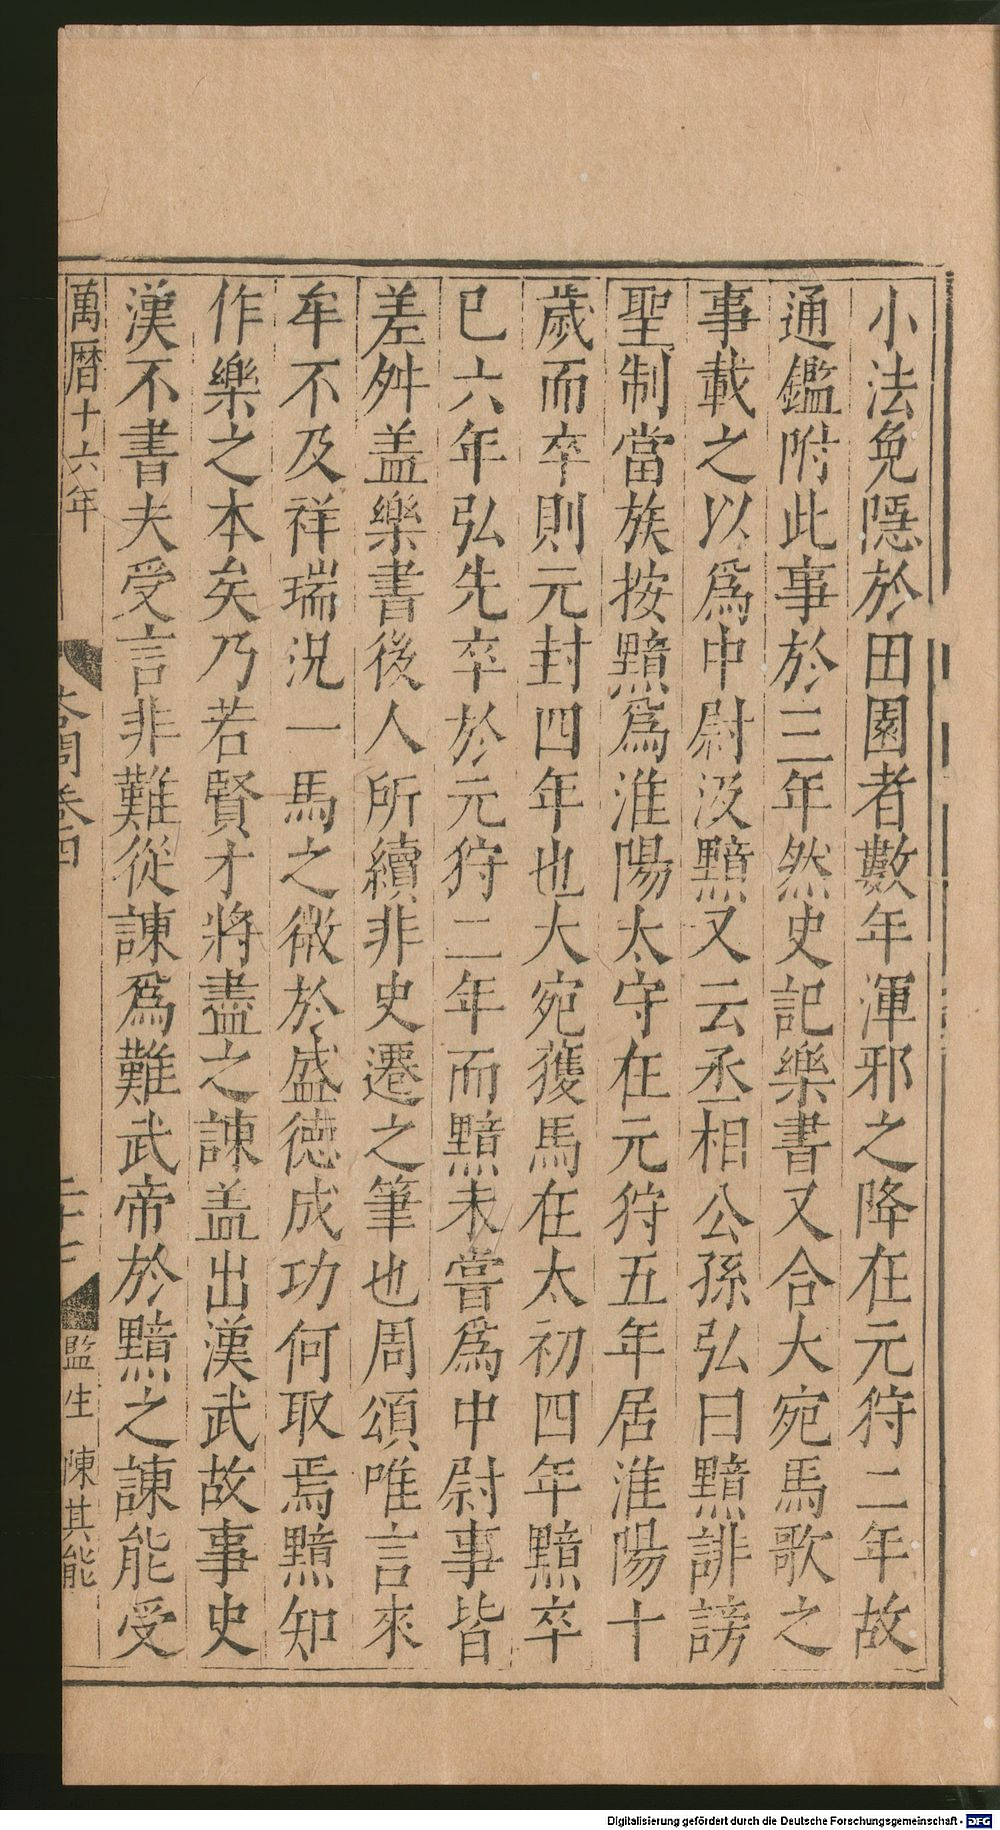 小法免隱於田園者數年渾邪之降在元狩二年故
通鑑附此事於三年然史記樂書又合大宛馬歌之
事載之以爲中尉汲黯又云丞相公孫弘曰黯誹謗
聖制當族按黯爲淮陽太守在元狩五年居淮陽十
歲而卒則元封四年也大宛獲馬在太初四年黯卒
已六年弘先卒於元狩二年而黯未嘗爲中尉事皆
差舛盖樂書後人所續非史遷之筆也周頌唯言來
牟不及祥瑞況一馬之微於盛德成功何取焉黯知
作樂之本矣乃若賢才將盡之諫盖出漢武故事史
漢不書夫受言非難從諫爲難武帝於黯之諫能受
萬曆十六年 荅問卷四 二十七 監生 陳其能
Digitalisierung gefördert durch die Deutsche Forschungsgemeinschaft - DFG